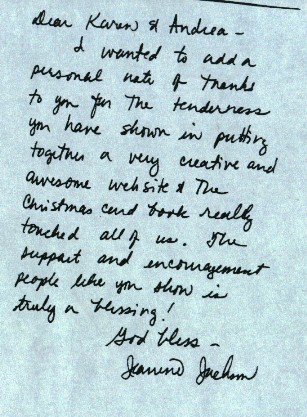 Dear Karen & Andrea -
I wanted to add a
personal note of Thanks
to you for The tenderness
you have shown in putting
together a very creative and
awesome website & The
Christmas card book really
touched all of us. The
support and encouragement
people like you show is
truly a blessing!
God bless -
Jeanine Jackson